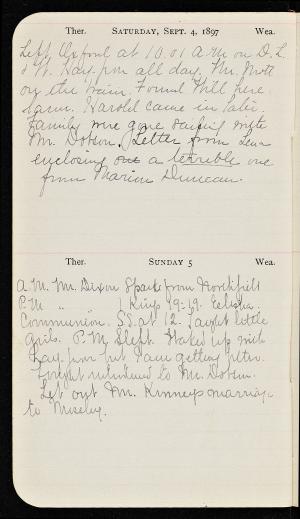 Ther. SATURDAY, SEPT. 4, 1897 Wea.
Left Oxford at 10.01 A.M on D. L.
& W. Hay. pm all day. Mr. Mott
on the train. Found Will here
Harold came in later.
Family were gone
Mr. Dobson. Letter from
enclosing a terrible one
from Marion Duncan.
Ther. SUNDAY 5 Wea.
A.M. Mr. Dixon Spoke from Northfield
P.M. " 1 Kings 19-19. Elisha.
Communion. S.S. at 12. Taught little
girls. P.M. Slept. Waked up with
Hay. pm but I am getting
to Mr. Dobson.
Let out Mr. Kinney's marriage
to